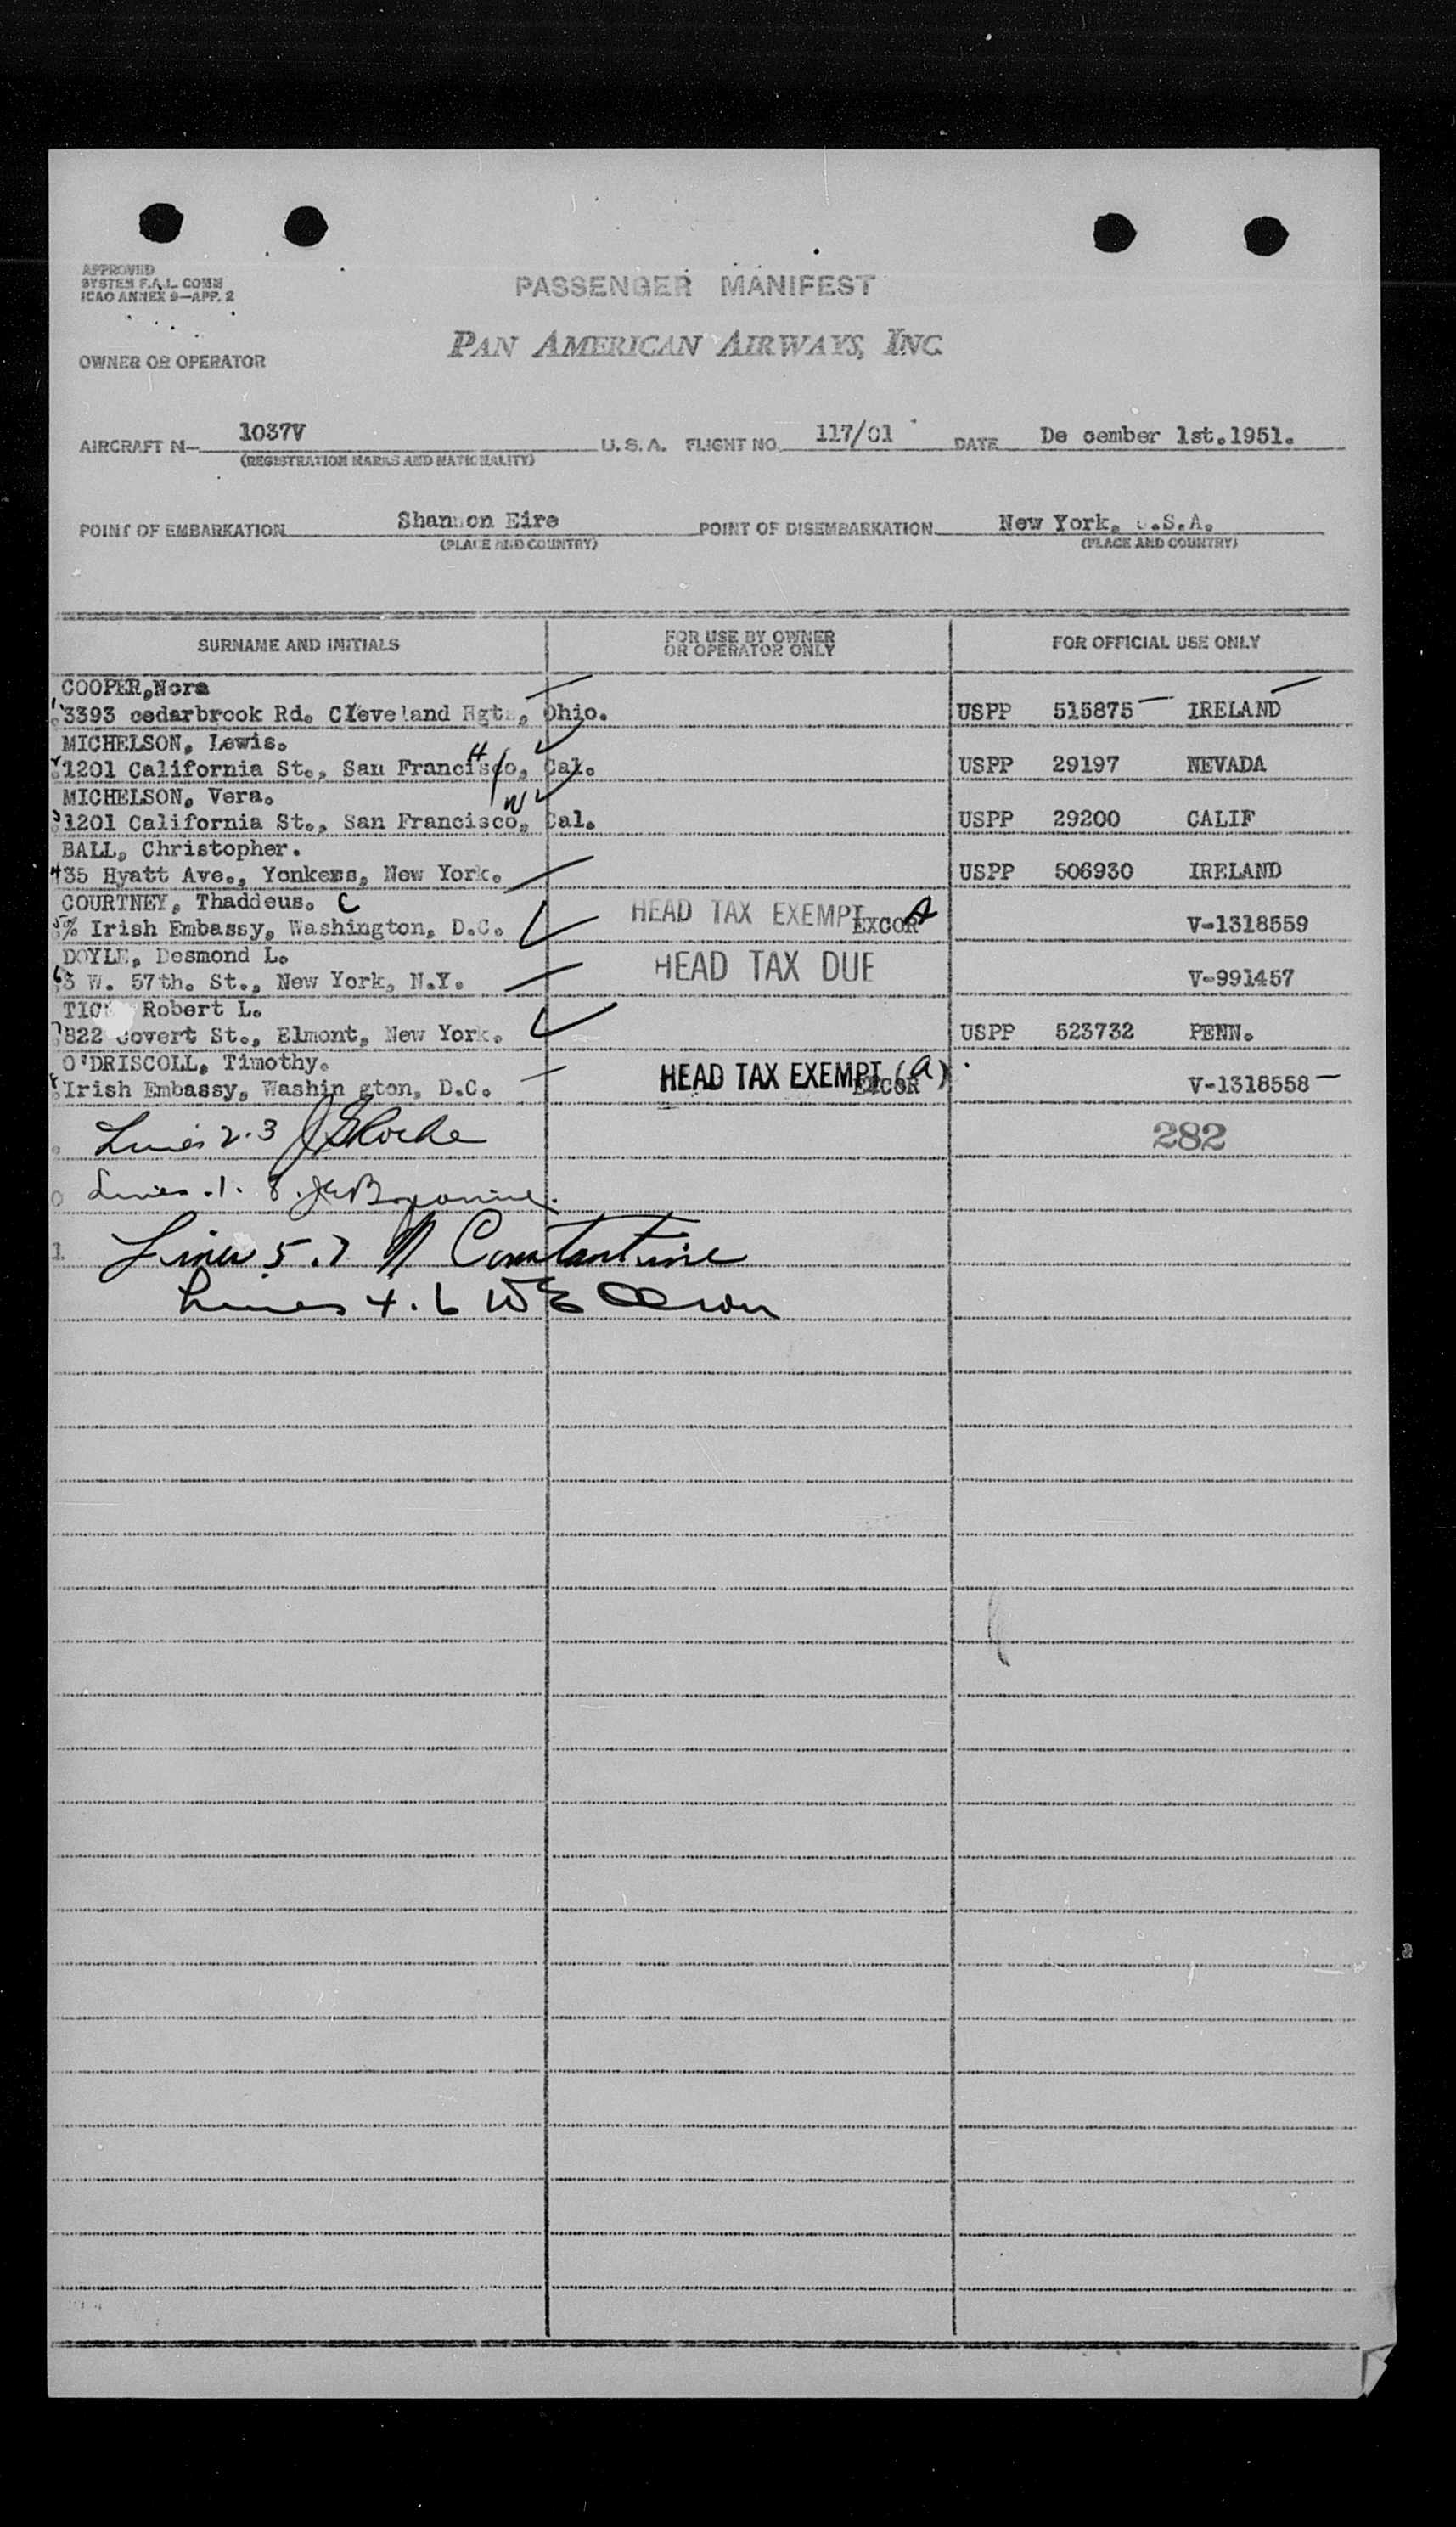 APPROVED
SYSTEM F.A.L. COMM
ICAO ANNEX 9—APP. 2
PASSENGER MANIFEST
PAN AMERICAN AIRWAYS, INC.
OWNER OR OPERATOR
AIRCRAFT N— 1037V U.S.A. FLIGHT NO. 117/01 DATE De cember 1st.1951.
(REGISTRATION MARKS AND NATIONALITY)
POINT OF EMBARKATION Shannon Eire POINT OF DISEMBARKATION New York, U.S.A.
(PLACE AND COUNTRY) (PLACE AND COUNTRY)
SURNAME AND INITIALS FOR USE BY OWNER OR OPERATOR ONLY FOR OFFICIAL USE ONLY
COOPER,Nora
1 3393 cedarbrook Rd. Cleveland Hgts, Ohio. USPP 515875 IRELAND
MICHELSON, Lewis. H
2 1201 California St., San Francisco, Cal. USPP 29197 NEVADA
MICHELSON, Vera. W
3 1201 California St., San Francisco, Cal. USPP 29200 CALIF
BALL, Christopher.
4 35 Hyatt Ave., Yonkers, New York. USPP 506930 IRELAND
COURTNEY, Thaddeus. C HEAD TAX EXEMPT EXCOR A
5 % Irish Embassy, Washington, D.C. V-1318559
DOYLE, Desmond L. HEAD TAX DUE
6 3 W. 57th. St., New York, N.Y. V-991457
Robert L.
7 822 Covert St., Elmont, New York. USPP 523732 PENN.
O'DRISCOLL, Timothy. HEAD TAX EXEMPT (a)
8 Irish Embassy, Washin gton, D.C. EXCOR V-1318558
Lines 2.3 282
Lines .1. 8.
Lines 5.7 N Constantine
Lines 4.6 WE Olson